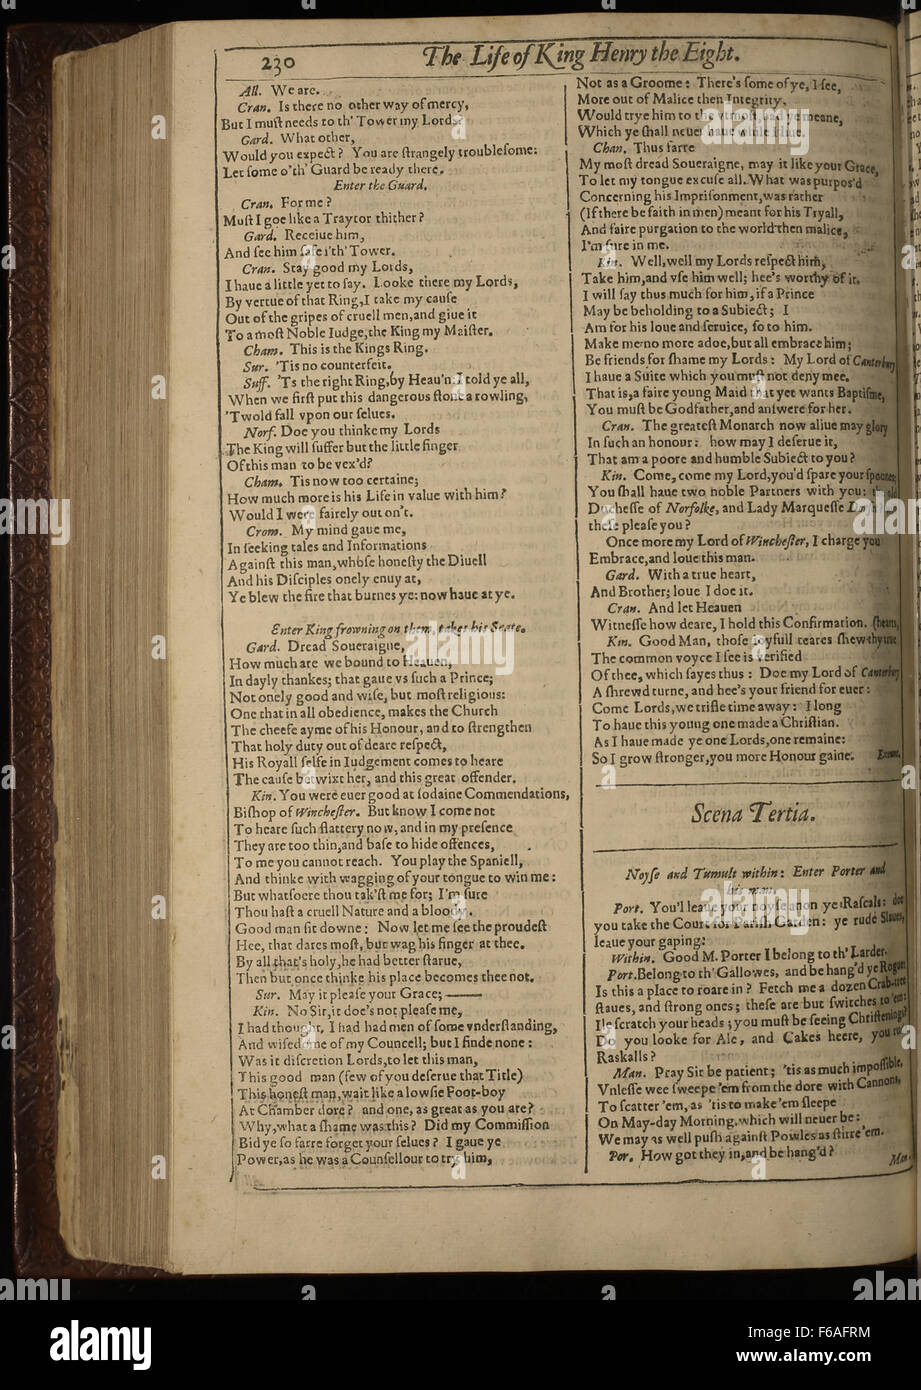 230
The Life of King Henry the Eight.
All. We are.
Cran. Is there no other way of mercy,
But I muſt needs to th' Tower my Lords?
Gard. What other,
Would you expect? You are ſtrangely troubleſome:
Let ſome o'th' Guard be ready there.
Enter the Guard.
Cran. For me?
Muſt I goe like a Traytor thither?
Gard. Receiue him,
And ſee him ſafe i'th' Tower.
Cran. Stay good my Lords,
I haue a little yet to ſay. Looke there my Lords,
By vertue of that Ring, I take my cauſe
Out of the gripes of cruell men, and giue it
To a moſt Noble Iudge, the King my Maiſter.
Cham. This is the Kings Ring.
Sur. 'Tis no counterfeit.
Suff. 'Ts the right Ring, by Heau'n: I told ye all,
When we firſt put this dangerous ſtone a rowling,
'Twold fall vpon our ſelues.
Norf. Doe you thinke my Lords
The King will ſuffer but the little finger
Of this man to be vex'd?
Cham. Tis now too certaine;
How much more is his Life in value with him?
Would I were fairely out on't.
Crom. My mind gaue me,
In ſeeking tales and Informations
Againſt this man, whoſe honeſty the Diuell
And his Diſciples onely enuy at,
Ye blew the fire that burnes ye: now haue at ye.
Enter King frowning on them, takes his Seate.
Gard. Dread Soueraigne,
How much are we bound to Heauen,
In dayly thankes; that gaue vs ſuch a Prince;
Not onely good and wiſe, but moſt religious:
One that in all obedience, makes the Church
The cheefe ayme of his Honour, and to ſtrengthen
That holy duty out of deare reſpect,
His Royall ſelfe in Iudgement comes to heare
The cauſe betwixt her, and this great offender.
Kin. You were euer good at ſodaine Commendations,
Biſhop of Wincheſter. But know I come not
To heare ſuch flattery now, and in my preſence
They are too thin, and baſe to hide offences,
To me you cannot reach. You play the Spaniell,
And thinke with wagging of your tongue to win me:
But whatſoere thou tak'ſt me for; I'm ſure
Thou haſt a cruell Nature and a bloody.
Good man ſit downe: Now let me ſee the proudeſt
Hee, that dares moſt, but wag his finger at thee.
By all that's holy, he had better ſtarue,
Then but once thinke his place becomes thee not.
Sur. May it pleaſe your Grace; ———
Kin. No Sir, it doe's not pleaſe me,
I had thought, I had had men of ſome vnderſtanding,
And wiſedome of my Councell; but I finde none:
Was it diſcretion Lords, to let this man,
This good man (few of you deſerue that Title)
This honeſt man, wait like a lowſie Foot-boy
At Chamber dore? and one, as great as you are?
Why, what a ſhame was this? Did my Commiſſion
Bid ye ſo farre forget your ſelues? I gaue ye
Power, as he was a Counſellour to try him,
Not as a Groome: There's ſome of ye, I ſee,
More out of Malice then Integrity,
Would trye him to the vtmoſt, had ye meane,
Which ye ſhall neuer haue while I liue.
Chan. Thus farre
My moſt dread Soueraigne, may it like your Grace,
To let my tongue excuſe all. What was purpos'd
Concerning his Impriſonment, was rather
(If there be faith in men) meant for his Tryall,
And faire purgation to the world then malice,
I'm ſure in me.
Kin. Well, well my Lords reſpect him,
Take him, and vſe him well; hee's worthy of it.
I will ſay thus much for him, if a Prince
May be beholding to a Subiect; I
Am for his loue and ſeruice, ſo to him.
Make me no more adoe, but all embrace him;
Be friends for ſhame my Lords: My Lord of Canterbury
I haue a Suite which you muſt not deny mee.
That is, a faire young Maid that yet wants Baptiſme,
You muſt be Godfather, and anſwere for her.
Cran. The greateſt Monarch now aliue may glory
In ſuch an honour: how may I deſerue it,
That am a poore and humble Subiect to you?
Kin. Come, come my Lord, you'd ſpare your ſpoones;
You ſhall haue two noble Partners with you:
Ducheſſe of Norfolke, and Lady Marqueſſe
theſe pleaſe you?
Once more my Lord of Wincheſter, I charge you
Embrace, and loue this man.
Gard. With a true heart,
And Brother; loue I doe it.
Cran. And let Heauen
Witneſſe how deare, I hold this Confirmation.
Kin. Good Man, thoſe ioyfull teares ſhew thy true (hearts,
The common voyce I ſee is verified
Of thee, which ſayes thus: Doe my Lord of Canterbury
A ſhrewd turne, and hee's your friend for euer:
Come Lords, we trifle time away: I long
To haue this young one made a Chriſtian.
As I haue made ye one Lords, one remaine:
So I grow ſtronger, you more Honour gaine. Exeunt.
Scena Tertia.
Noyſe and Tumult within: Enter Porter and
his man.
Port. You'l leaue your noyſe anon ye Raſcals: doe
you take the Court for Pariſh Garden: ye rude Slaues,
leaue your gaping?
Within. Good M. Porter I belong to th' Larder.
Port. Belong to th' Gallowes, and be hang'd ye Rogue:
Is this a place to roare in? Fetch me a dozen Crab-tree
ſtaues, and ſtrong ones; theſe are but ſwitches to 'em:
Ile ſcratch your heads; you muſt be ſeeing Chriſtenings?
Do you looke for Ale, and Cakes heere, you rude
Raskalls?
Man. Pray Sir be patient; 'tis as much impoſſible,
Vnleſſe wee ſweepe 'em from the dore with Cannons,
To ſcatter 'em, as 'tis to make 'em ſleepe
On May-day Morning, which will neuer be:
We may as well puſh againſt Powles as ſtirre 'em.
Por. How got they in, and be hang'd?
Man.
alamy
Image ID: F6AFRM
www.alamy.com